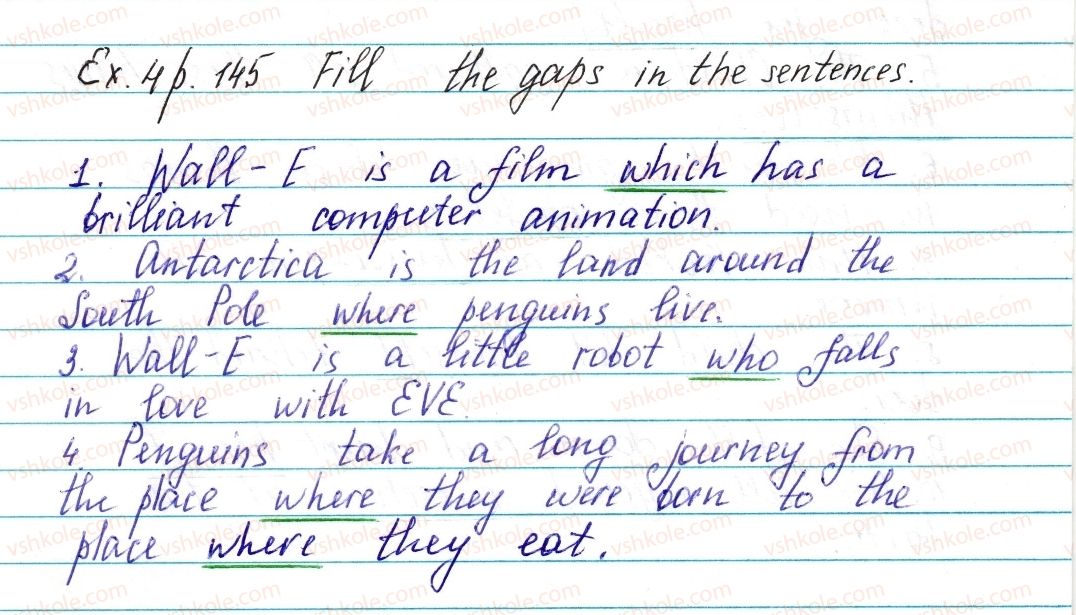 Ex. 4 p. 145 Fill the gaps in the sentences.
1. Wall-E is a film which has a
brilliant computer animation.
2. Antarctica is the land around the
South Pole where penguins live.
3. Wall-E is a little robot who falls
in love with EVE.
4. Penguins take a long journey from
the place where they were born to the
place where they eat.